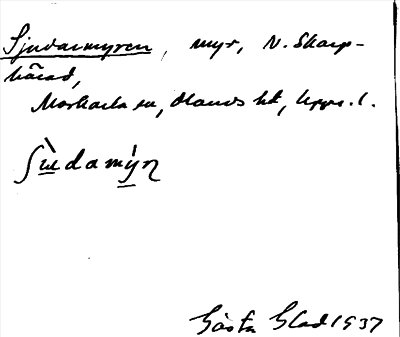 Sjudarmyren, myr, N. Skarp-
hårad,
Morkarla sn, Olands hd, Upps. l.
ʃùdamỳn
Gösta Glad 1937